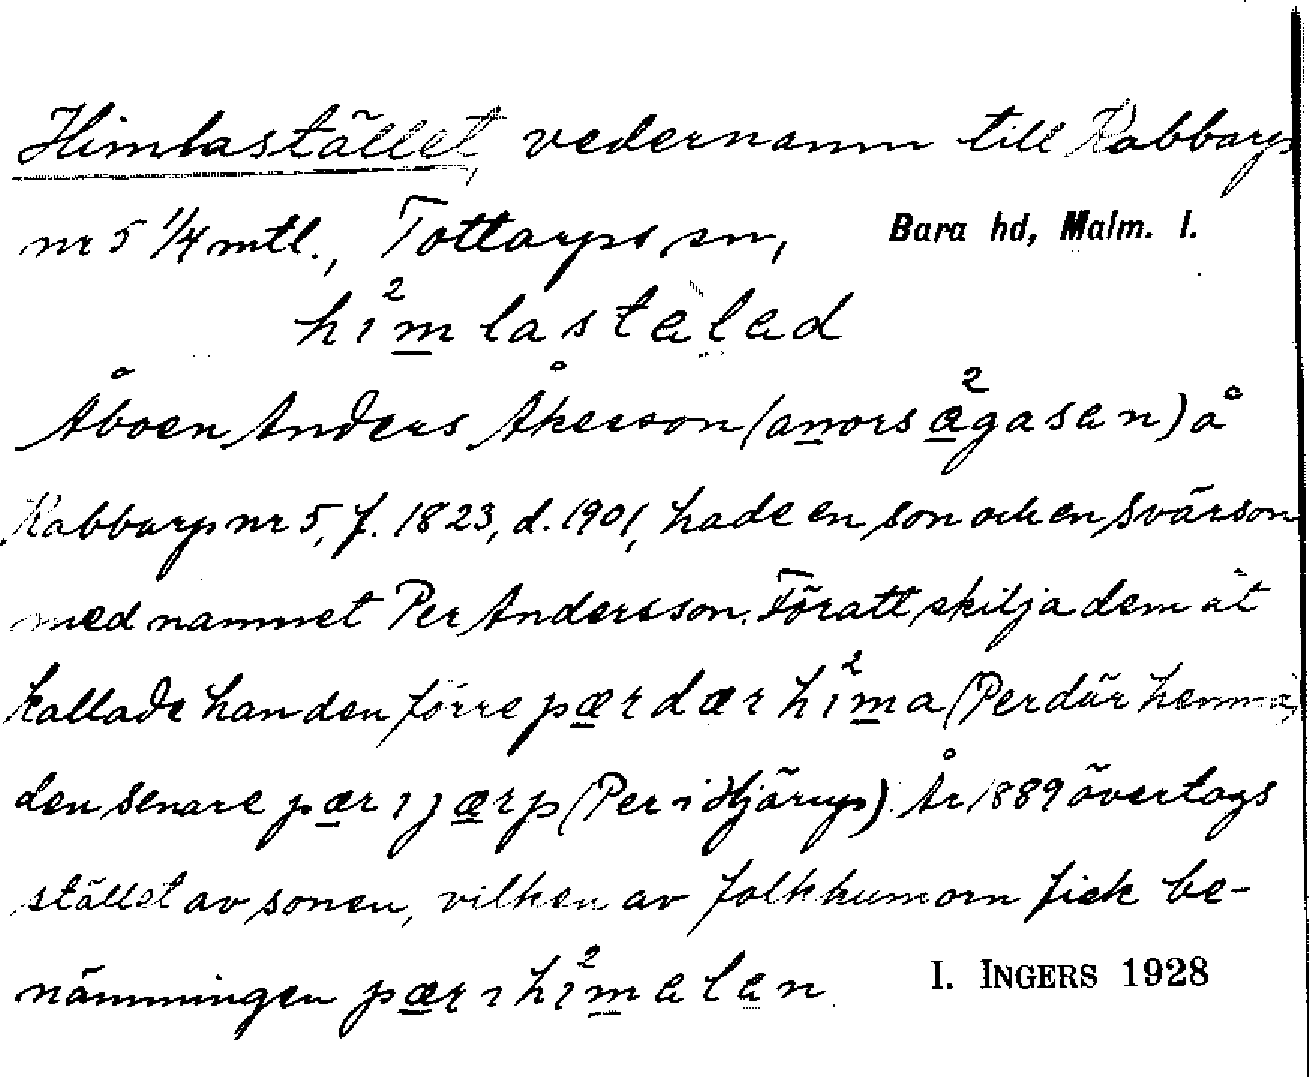 Himlastället, vedernamn till Kabbarp
nr 5 1/4 mtl., Tottarps sn, Bara hd, Malm. l.
hi²mlastälad
Åboen Anders Åkesson (anors ägasan) å
Kabbarp nr 5, f. 1823, d. 1901, hade en son och en svärson
med namnet Per Andersson. För att skilja dem åt
kallade han den förre pær dær hi²ma (Per där hemma),
den senare pær ı jærp (Per i Hjärup). År 1889 övertogs
stället av sonen, vilken av folkhumorn fick be-
nämningen pær ı hi²melen
I. INGERS 1928